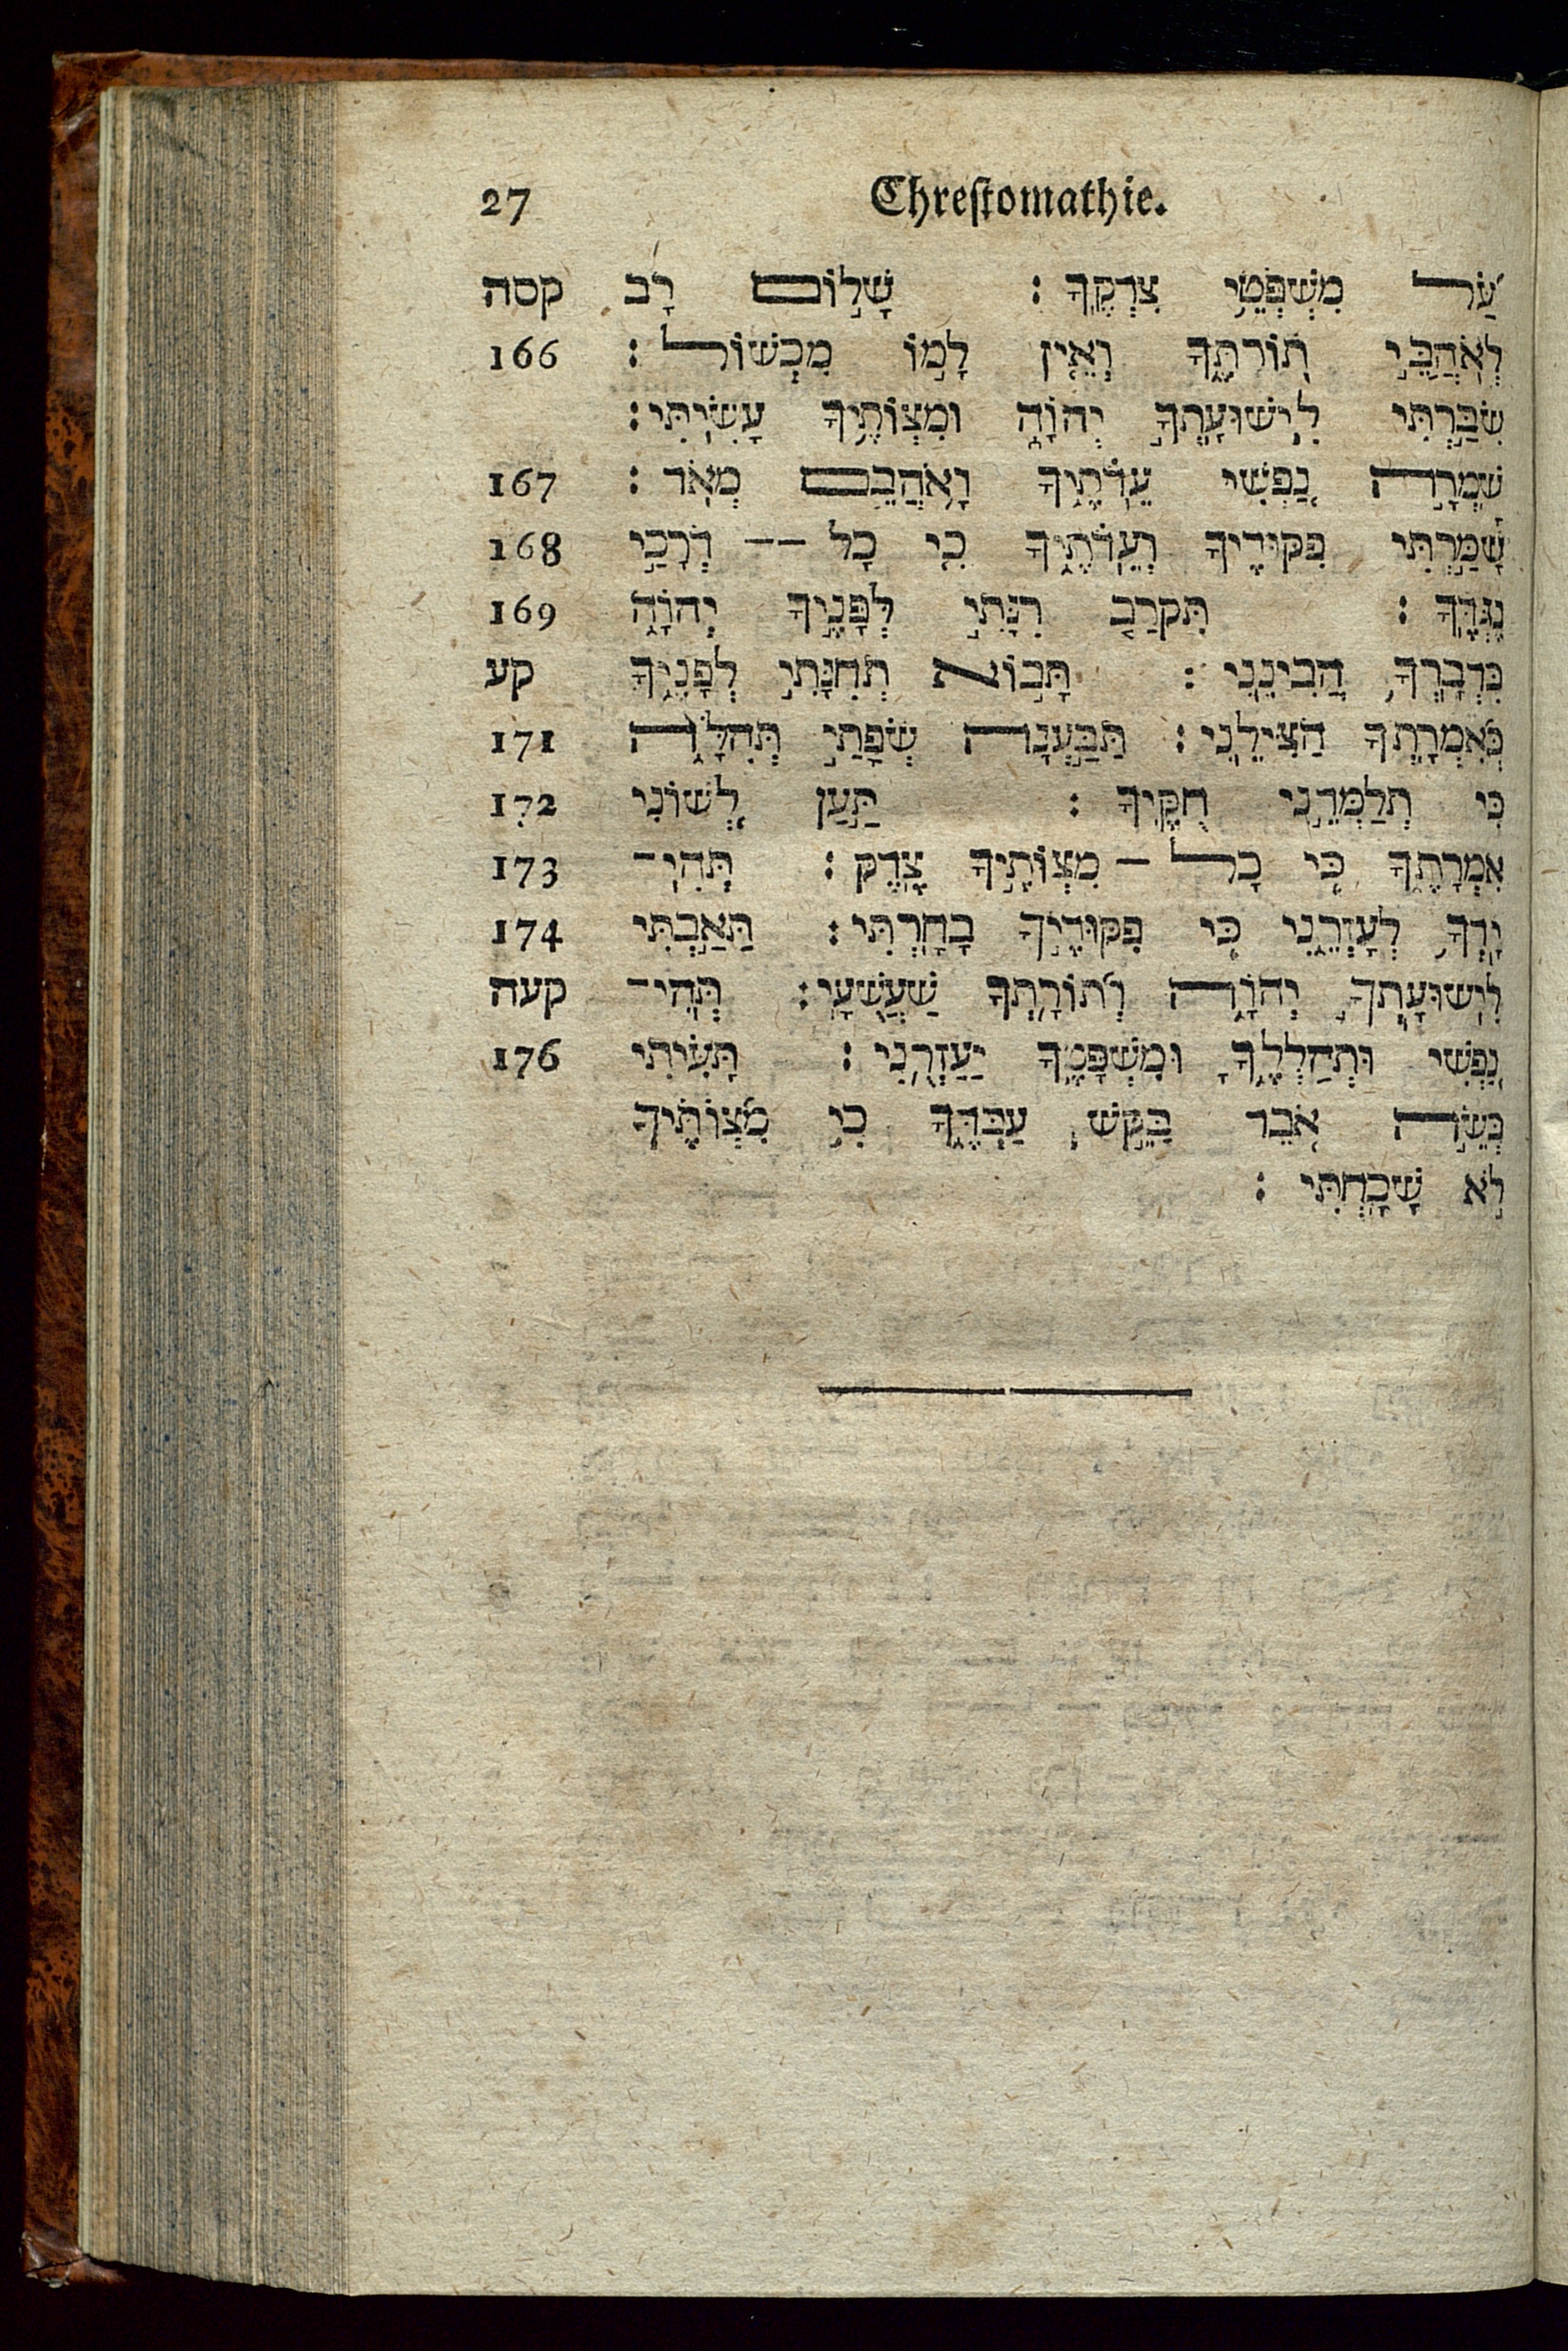 27 Chrestomathie.
עַ֝֗ל מִשְׁפְּטֵ֥י צִדְקֶֽךָ : שָׁל֣וֹם רָ֭ב קסה
לְאֹהֲבֵ֣י תוֹרָתֶ֑ךָ וְאֵ֖ין לָ֣מוֹ מִכְשֽׁוֹל : 166
שִׂבַּ֣רְתִּי לִֽישׁוּעָתְךָ֣ יְהוָֹ֑ה וּמִצְוֹתֶ֥יךָ עָשִֽׂיתִי :
שָֽׁמְרָ֣ה נַ֭פְשִׁי עֵדֹתֶ֑יךָ וָאֹהֲבֵ֥ם מְאֹֽד : 167
שָׁמַ֣רְתִּי פִ֭קּוּדֶיךָ וְעֵדֹתֶ֑יךָ כִּ֖י כָל -- דְּרָכַ֣י 168
נֶגְדֶּֽךָ : תִּקְרַ֤ב רִנָּתִ֣י לְפָנֶ֣יךָ יְהוָֹ֑ה 169
כִּדְבָרְךָ֥ הֲבִינֵֽנִי : תָּב֣וֹא תְחִנָּתִ֣י לְפָנֶ֑יךָ קע
כְּ֝אִמְרָתְךָ֗ הַצִּילֵֽנִי : תַּבַּ֣עְנָה שְׂפָתַ֣י תְּהִלָּ֑ה 171
כִּ֖י תְלַמְּדֵ֣נִי חֻקֶּֽיךָ : תַּ֣עַן לְ֭שׁוֹנִי 172
אִמְרָתֶ֑ךָ כִּ֖י כָל – מִצְוֹתֶ֣יךָ צֶּֽדֶק : תְּהִֽי־ 173
יָדְךָ֥ לְעָזְרֵ֑נִי כִּ֖י פִקּוּדֶ֣יךָ בָחָֽרְתִּי : תָּאַ֣בְתִּי 174
לִֽישׁוּעָתְךָ֣ יְהוָֹ֑ה וְ֝תוֹרָתְךָ֗ שַׁעֲשֻׁעָֽי : תְּֽחִי־ קעה
נַ֭פְשִׁי וּתְהַלְלֶ֑ךָּ וּֽמִשְׁפָּטֶ֥ךָ יַעְזְרֻֽנִי : תָּעִ֗יתִי 176
כְּשֶׂ֣ה אֹ֭בֵד בַּקֵּ֣שׁ עַבְדֶּ֑ךָ כִּ֥י מִ֝צְוֹתֶ֗יךָ
לֹ֣א שָׁכָֽחְתִּי :